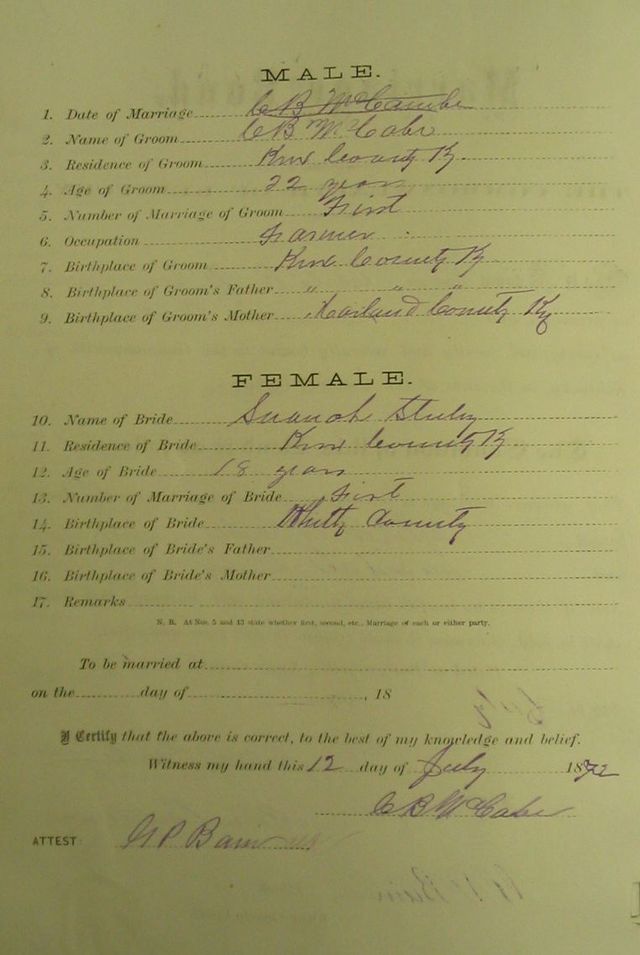 MALE.
1. Date of Marriage C B McCambe
2. Name of Groom C B McCabe
3. Residence of Groom Knox County Ky.
4. Age of Groom 22 years
5. Number of Marriage of Groom First
6. Occupation Farmer
7. Birthplace of Groom Knox County Ky
8. Birthplace of Groom's Father " " "
9. Birthplace of Groom's Mother Harland County Ky
FEMALE.
10. Name of Bride
11. Residence of Bride Knox County Ky
12. Age of Bride 18 years
13. Number of Marriage of Bride First
14. Birthplace of Bride County
15. Birthplace of Bride's Father
16. Birthplace of Bride's Mother
17. Remarks
N. B. At Nos. 5 and 13 state whether first, second, etc., Marriage of each or either party.
To be married at
on the day of , 18
I Certify that the above is correct, to the best of my knowledge and belief.
Witness my hand this 12 day of July 1892
C B McCabe
ATTEST: G P Bain